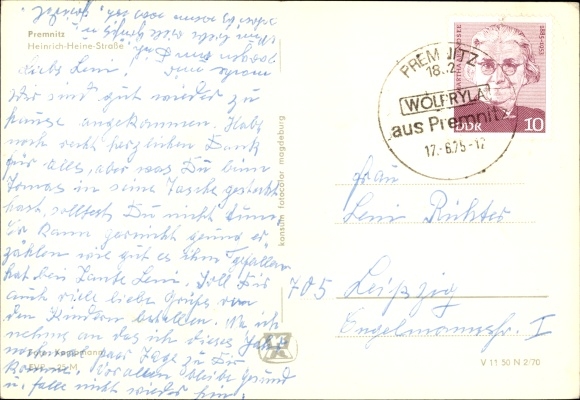 Premnitz
Heinrich-Heine-Straße
Liebe Leni!
Wir sind gut wieder zu
Hause angekommen. Hab
noch recht herzlichen Dank
für alles, aber was Du beim
Tomas in seine Tasche gesteckt
hast, solltest Du nicht tun.
Er kann garnicht genug er-
zählen wie gut es ihm gefallen
hat bei Tante Leni. Soll Dir
auch viele liebe Grüße von
den Kindern bestellen. Na ich
nehme an das ich dieses Jahr
noch paar Tage zu Dir
komme. Vor allen bleibe gesund
u. falle nicht wieder hin.
konsum fotocolor magdeburg
PREMNITZ
18.2
WOLFRYLA
aus Premnitz
17.-6.75-12
MARTHA ARENDSEE
1885-1953
DDR 10
Frau
Leni Richter
705 Leipzig
Engelmannstr. I
V 11 50 N 2/70